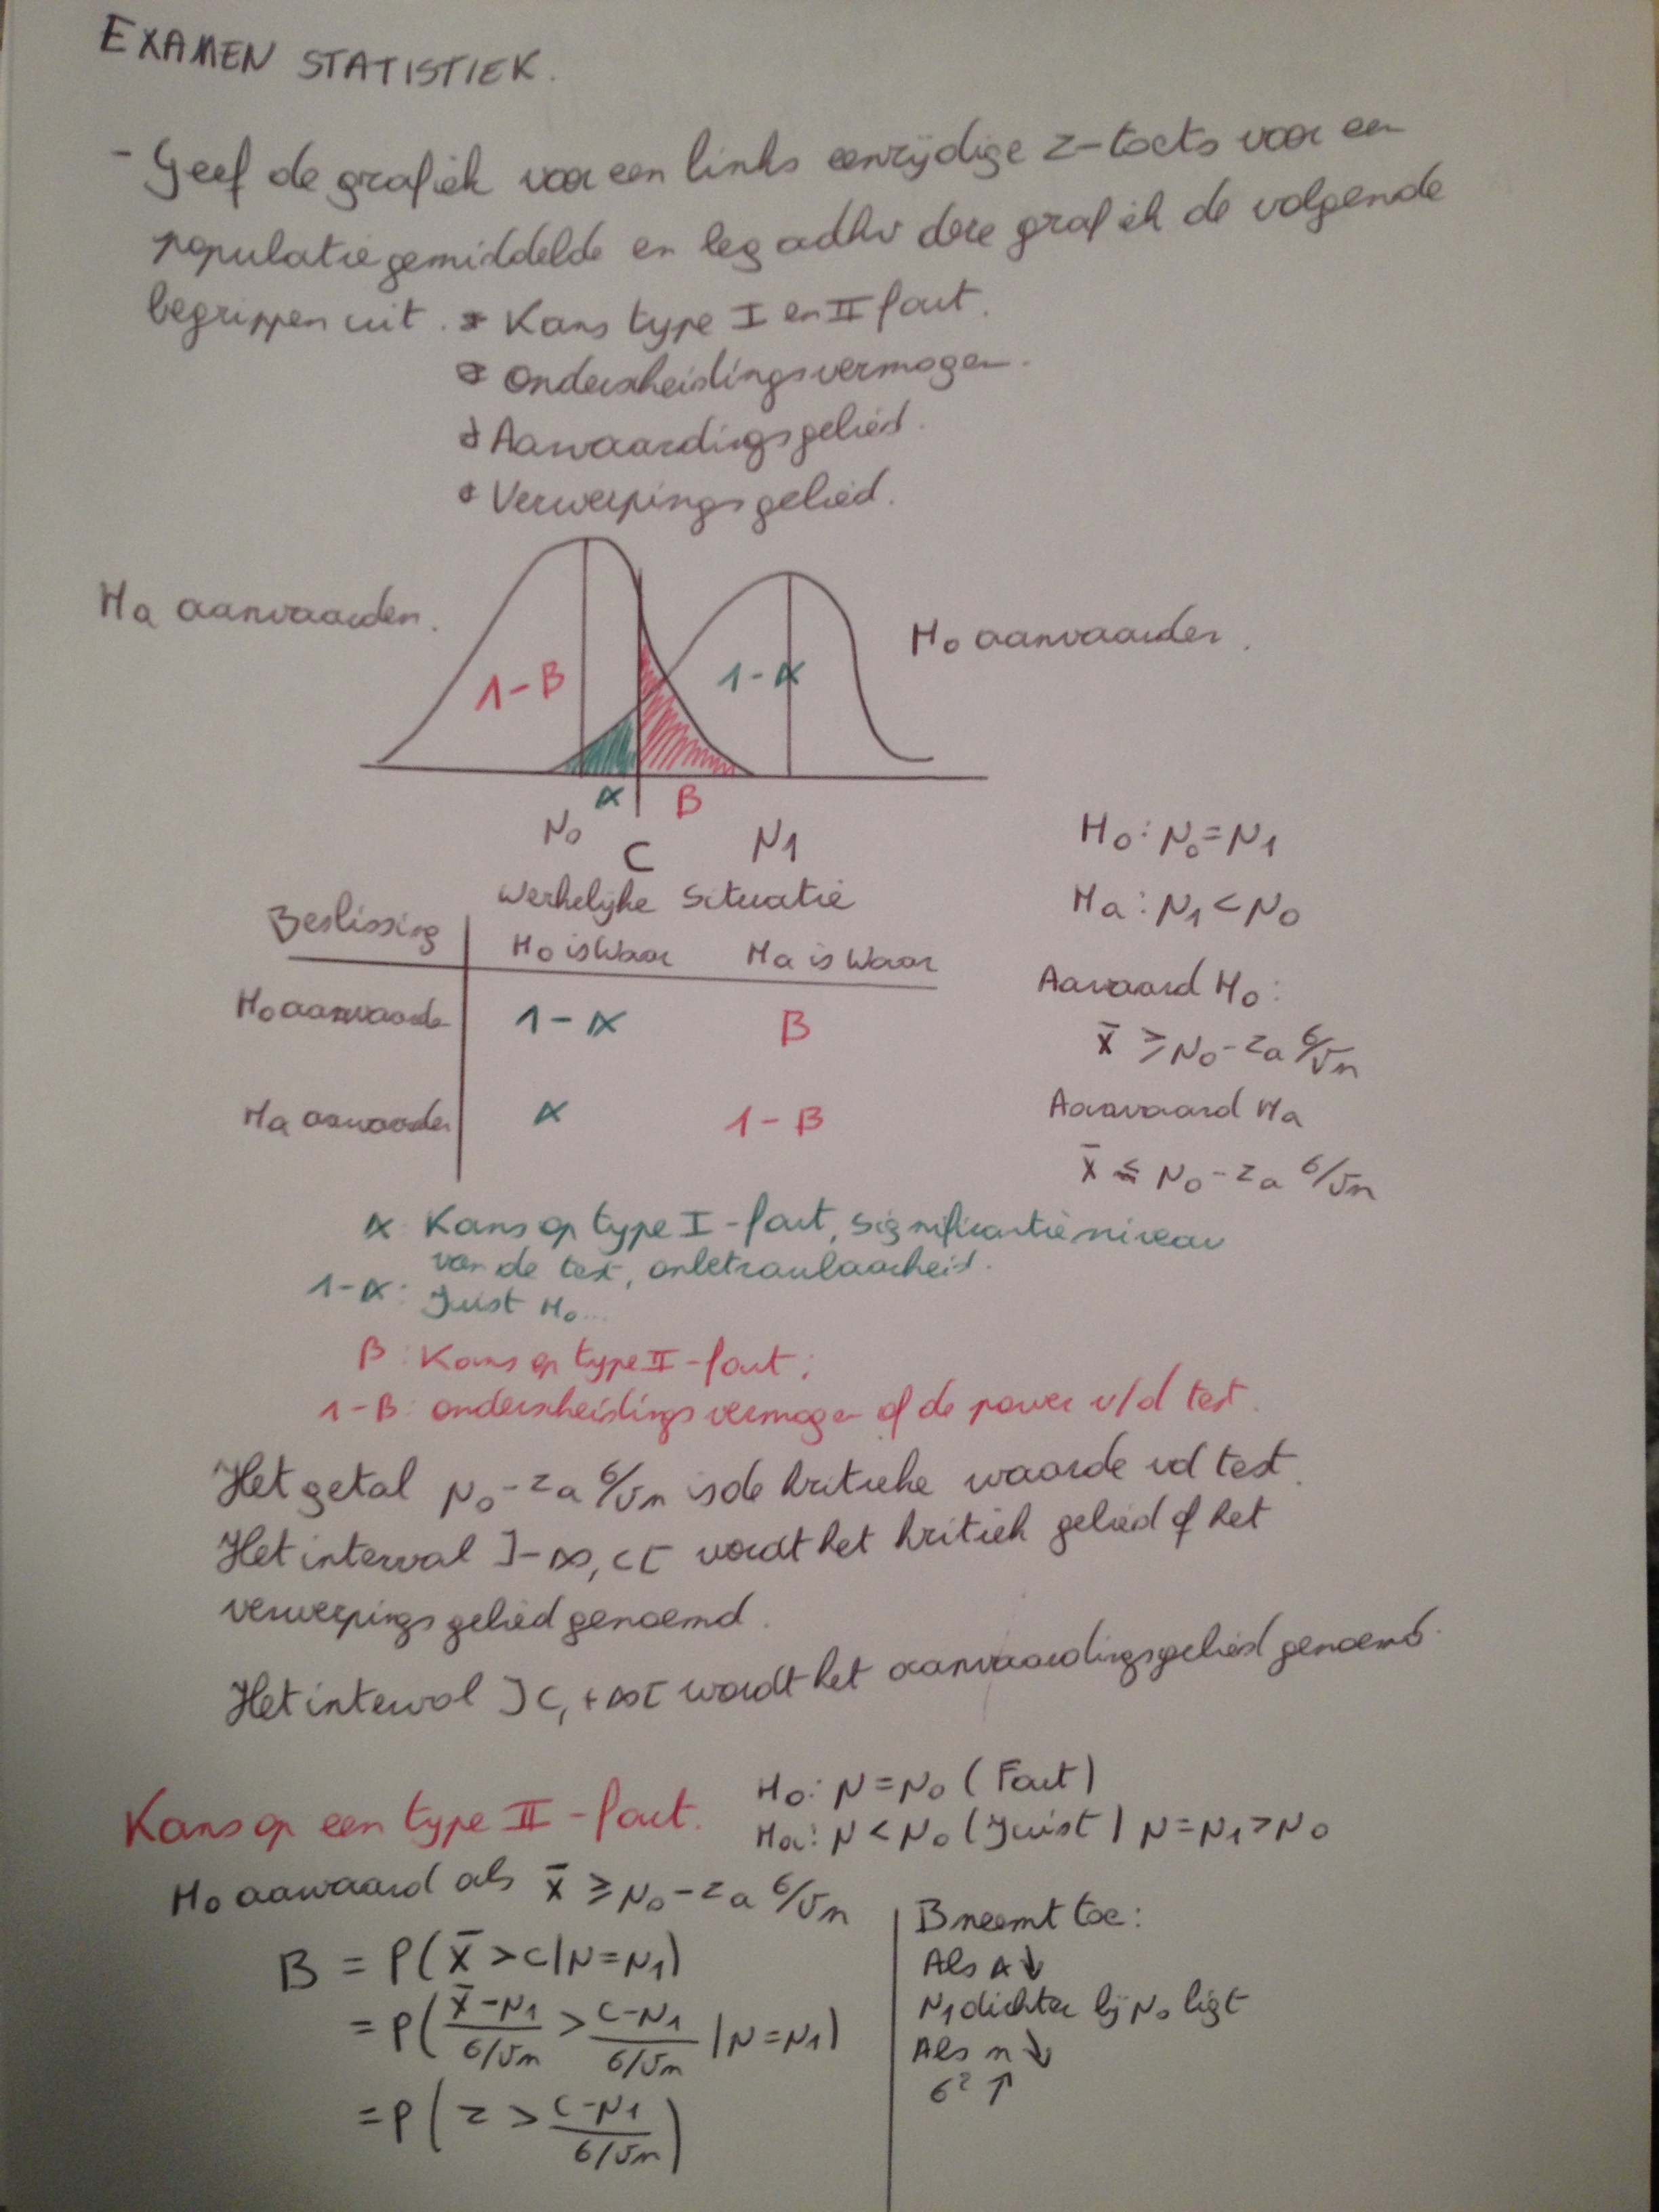 EXAMEN STATISTIEK.
- Geef de grafiek voor een links eenzijdige z-toets voor een
populatiegemiddelde en leg adhv deze grafiek de volgende
begrippen uit. * Kans type I en II fout.
* Onderscheidingsvermogen.
* Aanvaardingsgebied.
* Verwerpingsgebied.
Ha aanvaarden.
H0 aanvaarden.
1-β
1-α
α
β
μ0
C
μ1
H0: μ0 = μ1
Ha: μ1 < μ0
Werkelijke situatie
Beslissing
H0 is waar
Ha is waar
H0 aanvaarden
1-α
β
Ha aanvaarden
α
1-β
Aanvaard H0:
x̄ ≥ μ0 - zα σ/√n
Aanvaard Ha
x̄ ≤ μ0 - zα σ/√n
α: Kans op type I-fout, significantieniveau
van de test, onbetrouwbaarheid.
1-α: Juist H0...
β: Kans op type II-fout;
1-β: onderscheidingsvermogen of de power v/d test.
Het getal μ0 - zα σ/√n is de kritieke waarde vd test.
Het interval ]-∞, c[ wordt het kritiek gebied of het
verwerpingsgebied genoemd.
Het interval ]c, +∞[ wordt het aanvaardingsgebied genoemd.
Kans op een type II-fout.
H0: μ = μ0 (Fout)
Ha: μ < μ0 (Juist) μ = μ1 > μ0
H0 aanvaard als x̄ ≥ μ0 - zα σ/√n
β = P(x̄ > c | μ = μ1)
= P((x̄ - μ1)/(σ/√n) > (c - μ1)/(σ/√n) | μ = μ1)
= P(z > (c - μ1)/(σ/√n))
β neemt toe:
Als α ↓
μ1 dichter bij μ0 ligt
Als n ↓
σ² ↑